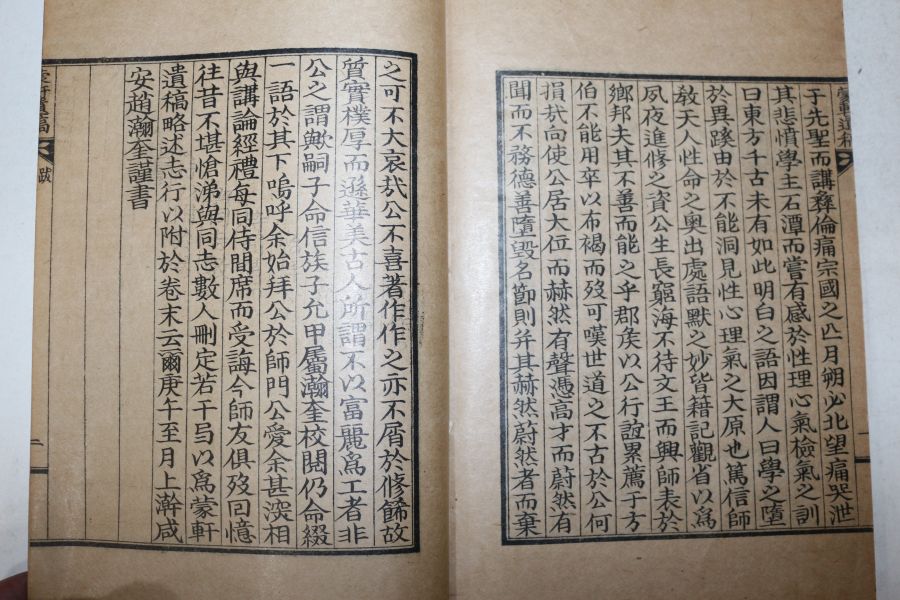 蒙軒遺稿
于先聖而講彝倫痛宗國之亡月朔必北望痛哭泄
其悲憤學主石潭而嘗有感於性理心氣檢氣之訓
曰東方千古未有如此明白之語因謂人曰學之墮
於異蹊由於不能洞見性心理氣之大原也篤信師
敎天人性命之奧出處語默之妙皆籍記觀省以爲
夙夜進修之資公生長窮海不待文王而興師表於
鄕邦夫其不善而能之乎郡矦以公行誼累薦于方
伯不能用卒以布褐而歿可嘆世道之不古於公何
損㢤向使公居大位而赫然有聲憑高才而蔚然有
聞而不務德善墮毁名節則并其赫然蔚然者而棄
之可不大哀㢤公不喜著作作之亦不屑於修餙故
質實樸厚而遜華美古人所謂不以富麗爲工者非
公之謂歟嗣子命信族子允甲屬瀚奎校閱仍命綴
一語於其下嗚呼余始拜公於師門公愛余甚深相
與講論經禮每同侍間席而受誨今師友俱歿回憶
往昔不堪愴涕與同志數人刪定若干弖以爲蒙軒
遺稿略述志行以附於卷末云爾庚午至月上澣咸
安趙瀚奎謹書
蒙軒遺稿
跋
二